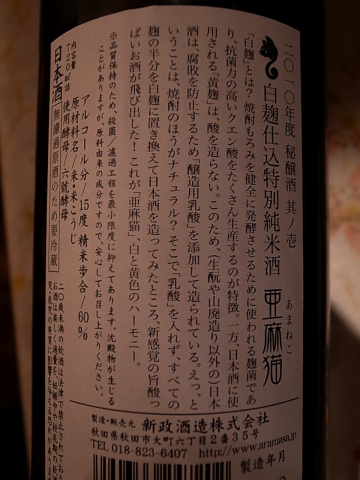 二〇一〇年度 秘醸酒 其ノ壱
白麹仕込特別純米酒 亜麻猫
あまねこ
「白麹」とは？焼酎もろみを健全に発酵させるために使われる麹菌であ
り、抗菌力の高いクエン酸をたくさん生産するのが特徴。一方、日本酒に使
用される「黄麹」は、酸を造らない。このため、（生酛や山廃造り以外の）日本
酒は、腐敗を防止するため「醸造用乳酸」を添加して造られている。えっ、と
いうことは、焼酎のほうがナチュラル？そこで「乳酸」を入れず、すべての
麹の半分を白麹に置き換えて日本酒を造ってみたところ、新感覚の旨酸っ
ぱいお酒が飛び出した！これが「亜麻猫」、白と黄色のハーモニー。
※品質保持のため、殺菌・濾過工程を最小限度に抑えてあります。沈殿物が生じる
ことがありますが、原料由来の成分ですので、安心してお召し上がりください。
アルコール分/15度 精米歩合/60%
原材料名/米・米こうじ
使用酵母/六號酵母
内容量
720ml詰
日本酒 無濾過原酒のため要冷蔵
二〇歳未満の飲酒は法律で禁止されており
製造・販売元 新政酒造株式会社
秋田県秋田市大町六丁目2番35号
TEL 018-823-6407 http://www.aramasa.jp
製造年月